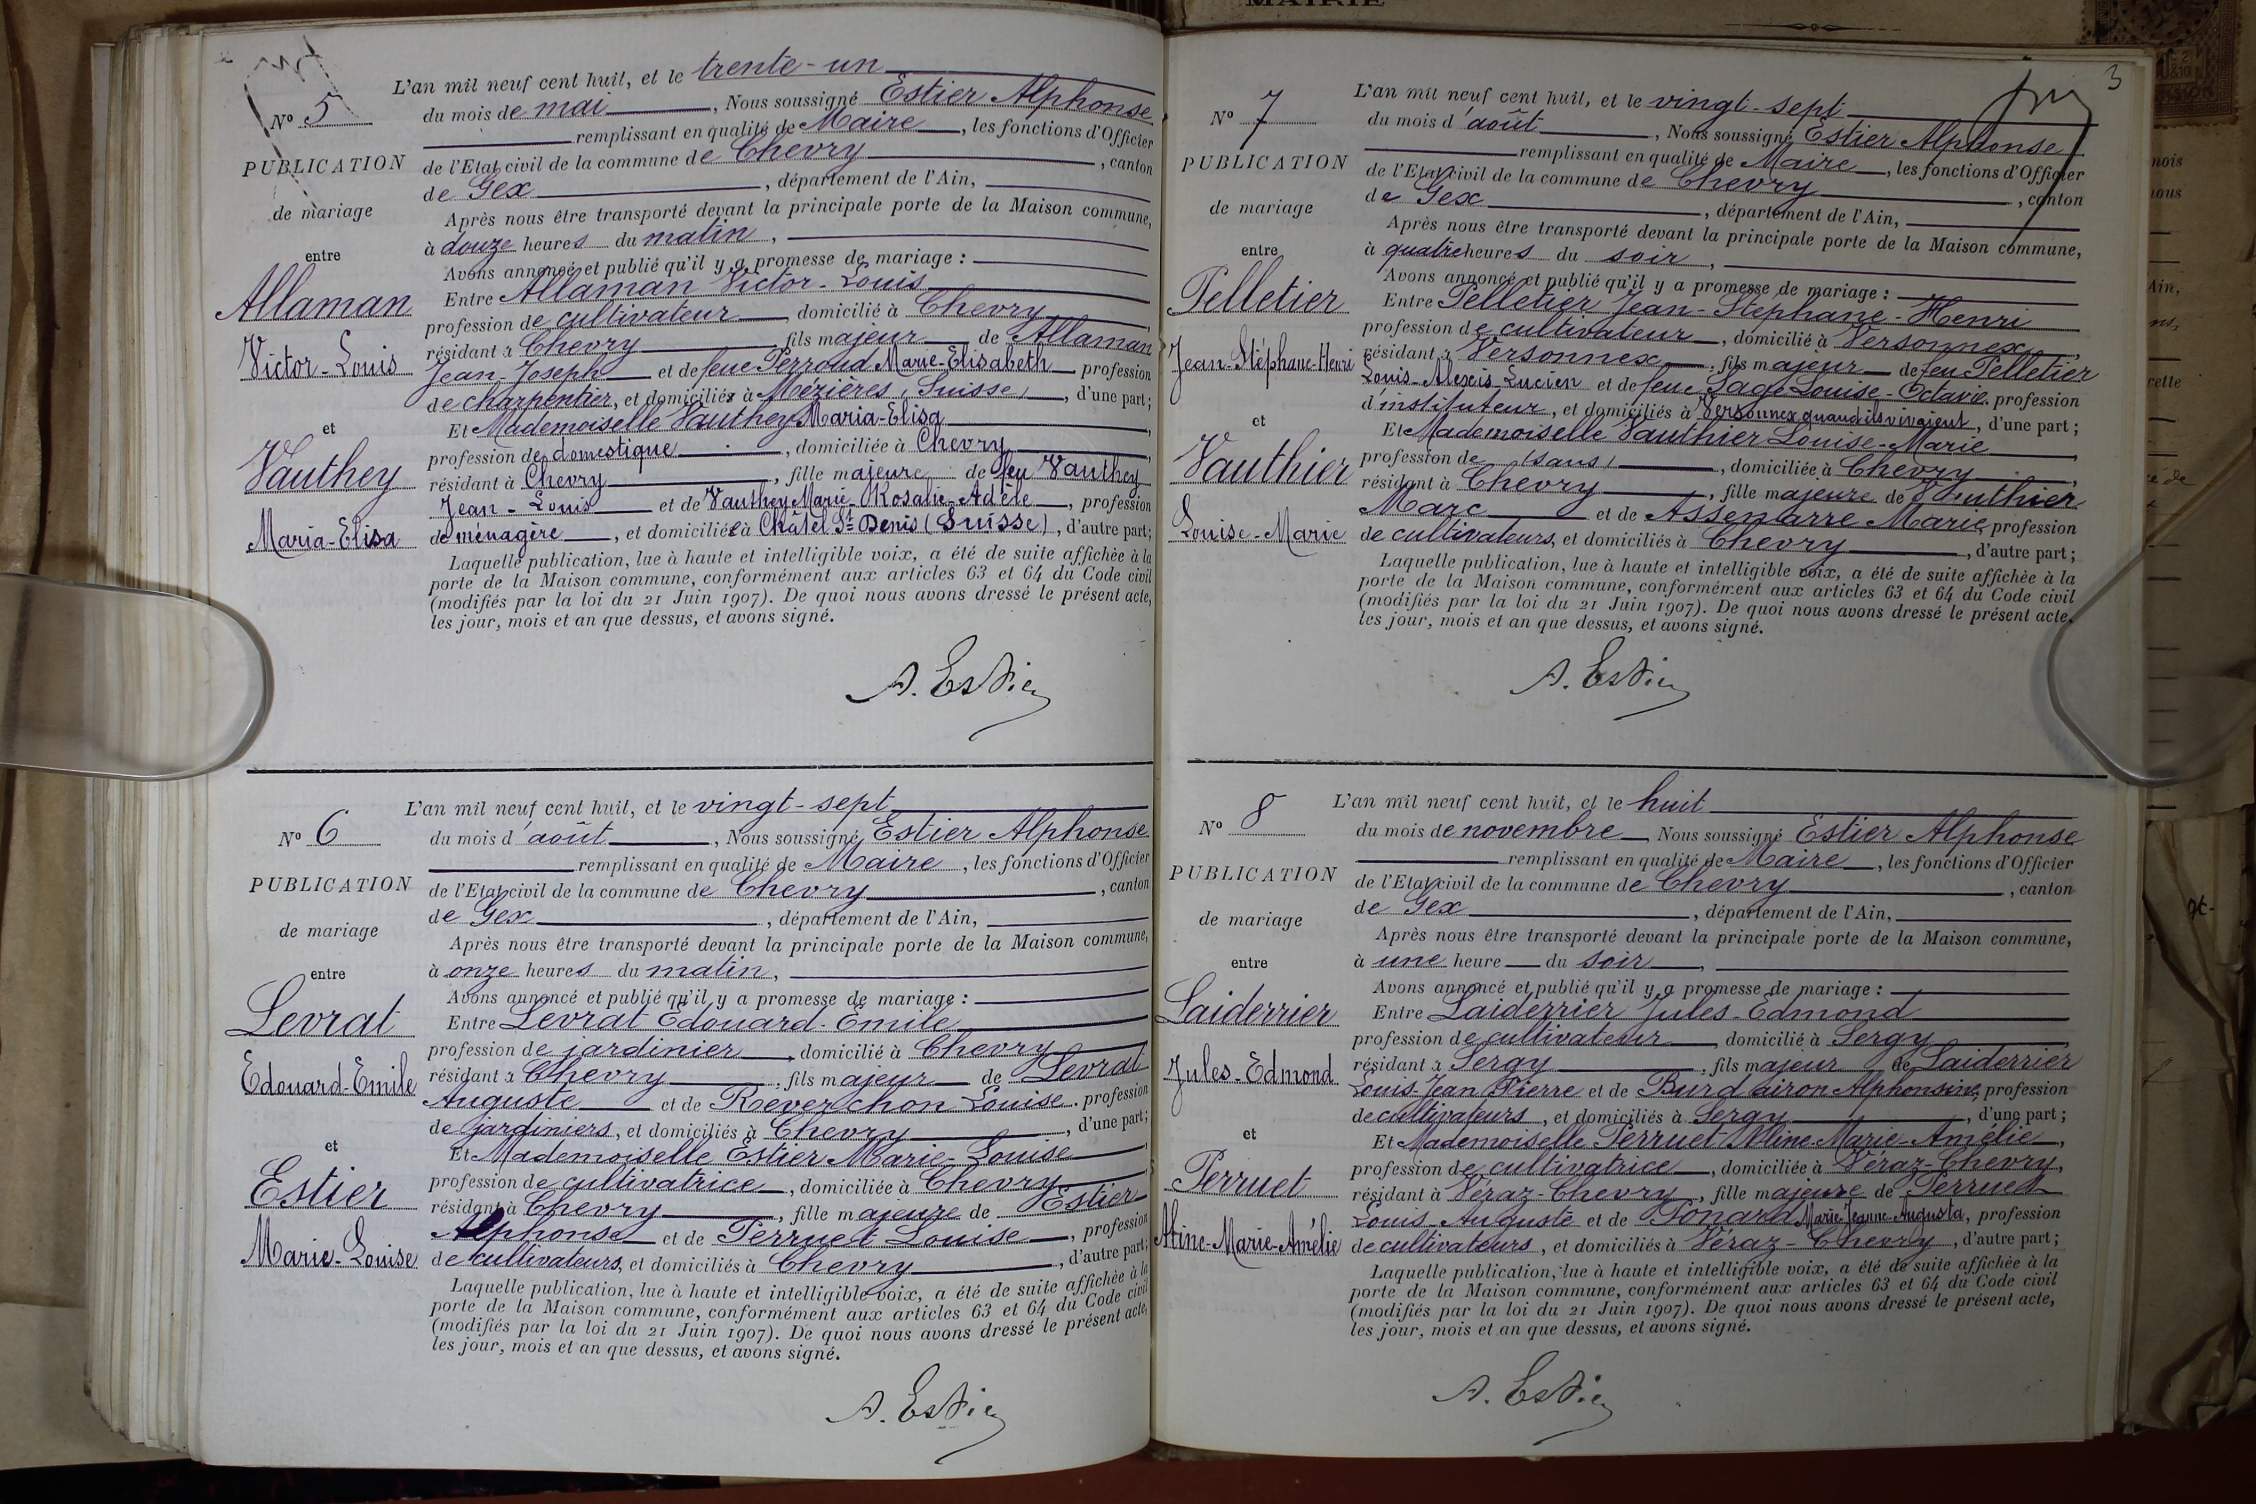 MAIRIE
L'an mil neuf cent huit, et le trente-un
Nº 5
du mois de mai, Nous soussigné Estier Alphonse
remplissant en qualité de Maire, les fonctions d'Officier
PUBLICATION
de l'Etat civil de la commune de Chevry, canton
de Gex, département de l'Ain,
de mariage
Après nous être transporté devant la principale porte de la Maison commune,
à douze heures du matin,
entre
Avons annoncé et publié qu'il y a promesse de mariage :
Allaman
Entre Allaman Victor-Louis
profession de cultivateur, domicilié à Chevry,
Victor-Louis
résidant à Chevry, fils majeur de Allaman
Jean-Joseph et de feue Perroud Marie-Elisabeth profession
de charpentier, et domiciliés à Mézières (Suisse), d'une part;
et
Et Mademoiselle Vauthey Maria-Elisa,
profession de domestique, domiciliée à Chevry,
Vauthey
résidant à Chevry, fille majeure de feu Vauthey
Jean-Louis et de Vauthey Marie-Rosalie-Adèle, profession
Maria-Elisa
de ménagère, et domiciliée à Châtel St Denis (Suisse), d'autre part;
Laquelle publication, lue à haute et intelligible voix, a été de suite affichée à la
porte de la Maison commune, conformément aux articles 63 et 64 du Code civil
(modifiés par la loi du 21 Juin 1907). De quoi nous avons dressé le présent acte,
les jour, mois et an que dessus, et avons signé.
A. Estier
L'an mil neuf cent huit, et le vingt-sept
Nº 6
du mois d'août, Nous soussigné Estier Alphonse
remplissant en qualité de Maire, les fonctions d'Officier
PUBLICATION
de l'Etat civil de la commune de Chevry, canton
de Gex, département de l'Ain,
de mariage
Après nous être transporté devant la principale porte de la Maison commune,
entre
à onze heures du matin,
Avons annoncé et publié qu'il y a promesse de mariage :
Levrat
Entre Levrat Edouard-Emile
profession de jardinier, domicilié à Chevry
Edouard-Emile
résidant à Chevry, fils majeur de Levrat
Auguste et de Reverchon Louise, profession
de jardiniers, et domiciliés à Chevry, d'une part;
et
Et Mademoiselle Estier Marie-Louise,
Estier
profession de cultivatrice, domiciliée à Chevry
résidant à Chevry, fille majeure de Estier
Alphonse et de Perruet Louise, profession
Marie-Louise
de cultivateurs, et domiciliés à Chevry, d'autre part;
Laquelle publication, lue à haute et intelligible voix, a été de suite affichée à la
porte de la Maison commune, conformément aux articles 63 et 64 du Code civil
(modifiés par la loi du 21 Juin 1907). De quoi nous avons dressé le présent acte,
les jour, mois et an que dessus, et avons signé.
A. Estier
3
L'an mil neuf cent huit, et le vingt-sept
Nº 7
du mois d'août, Nous soussigné Estier Alphonse
remplissant en qualité de Maire, les fonctions d'Officier
PUBLICATION
de l'Etat civil de la commune de Chevry, canton
de Gex, département de l'Ain,
de mariage
Après nous être transporté devant la principale porte de la Maison commune,
entre
à quatre heures du soir,
Avons annoncé et publié qu'il y a promesse de mariage :
Pelletier
Entre Pelletier Jean-Stéphane-Henri
profession de cultivateur, domicilié à Versonnex,
Jean-Stéphane-Henri
résidant à Versonnex, fils majeur de feu Pelletier
Louis-Alexis-Lucien et de feue Sage Louise-Octavie, profession
d'instituteur, et domiciliés à Versonnex quand ils vivaient, d'une part;
et
Et Mademoiselle Vauthier Louise-Marie,
Vauthier
profession de (sans), domiciliée à Chevry,
résidant à Chevry, fille majeure de Vauthier
Marc et de Assenarre Marie, profession
Louise-Marie
de cultivateurs, et domiciliés à Chevry, d'autre part;
Laquelle publication, lue à haute et intelligible voix, a été de suite affichée à la
porte de la Maison commune, conformément aux articles 63 et 64 du Code civil
(modifiés par la loi du 21 Juin 1907). De quoi nous avons dressé le présent acte,
les jour, mois et an que dessus, et avons signé.
A. Estier
L'an mil neuf cent huit, et le huit
Nº 8
du mois de novembre, Nous soussigné Estier Alphonse
remplissant en qualité de Maire, les fonctions d'Officier
PUBLICATION
de l'Etat civil de la commune de Chevry, canton
de Gex, département de l'Ain,
de mariage
Après nous être transporté devant la principale porte de la Maison commune,
entre
à une heure du soir,
Avons annoncé et publié qu'il y a promesse de mariage :
Laiderrier
Entre Laiderrier Jules-Edmond
profession de cultivateur, domicilié à Sergy,
Jules-Edmond
résidant à Sergy, fils majeur de Laiderrier
Louis-Jean Pierre et de Burdairon Alphonsine, profession
de cultivateurs, et domiciliés à Sergy, d'une part;
et
Et Mademoiselle Perruet Aline-Marie-Amélie,
profession de cultivatrice, domiciliée à Véraz-Chevry,
Perruet
résidant à Véraz-Chevry, fille majeure de Perruet
Louis-Auguste et de Ponard Marie-Jeanne-Augusta, profession
Aline-Marie-Amélie
de cultivateurs, et domiciliés à Véraz-Chevry, d'autre part;
Laquelle publication, lue à haute et intelligible voix, a été de suite affichée à la
porte de la Maison commune, conformément aux articles 63 et 64 du Code civil
(modifiés par la loi du 21 Juin 1907). De quoi nous avons dressé le présent acte,
les jour, mois et an que dessus, et avons signé.
A. Estier